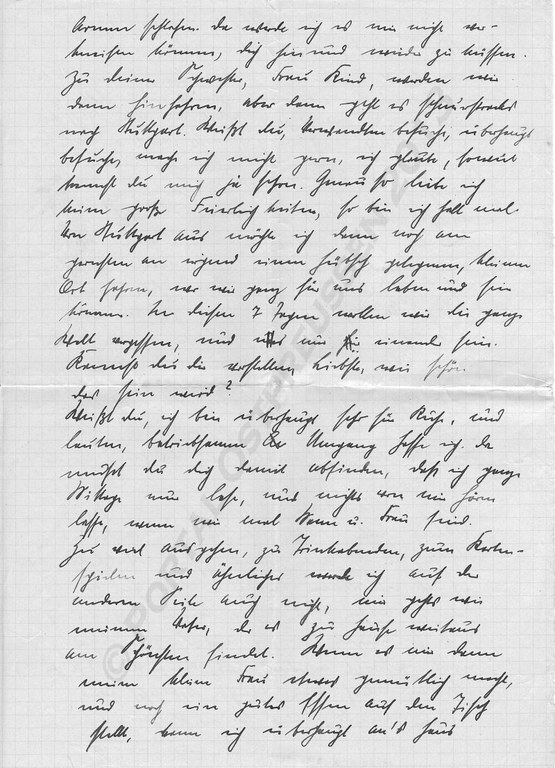 Armen schlafen. Da werde ich es mir nicht ver-
kneifen können, dich hin und wieder zu küssen.
Zu deiner Schwester, Frau Kind, werden wir
dann hinfahren, aber dann geht es schnurstracks
nach Stuttgart. Weißt du, Verwandtenbesuche, überhaupt
Besuche, mache ich nicht gern, ich glaube, soweit
kennst du mich ja schon. Genau so liebe ich
keine großen Feierlichkeiten, so bin ich halt mal.
Von Stuttgart aus möchte ich dann noch am
gernsten an irgend einen hübsch gelegenen, kleinen
Ort fahren, wo wir ganz für uns leben und sein
können. In diesen 7 Tagen wollen wir die ganze
Welt vergessen, und nur für einander sein.
Kannst du dir vorstellen, Liebste, wie schön
das sein wird?
Weißt du, ich bin überhaupt sehr für Ruhe, und
lauten, betriebsamen Umgang hasse ich. Da
mußt du dich damit abfinden, daß ich ganze
Mittage nur lese, und nichts von mir hören
lasse, wenn wir mal Mann u. Frau sind.
Zu viel ausgehen, zu Trinkabenden, zum Karten-
spielen und ähnliches werde ich auf der
anderen Seite auch nicht, mir gehts wie
meinem Vater, der es zu Hause weitaus
am Schönsten findet. Wenn es mir dann
meine kleine Frau etwas gemütlich macht,
und noch ein gutes Essen auf den Tisch
stellt, kann ich überhaupt an's Haus
© OSTPREUSSEN